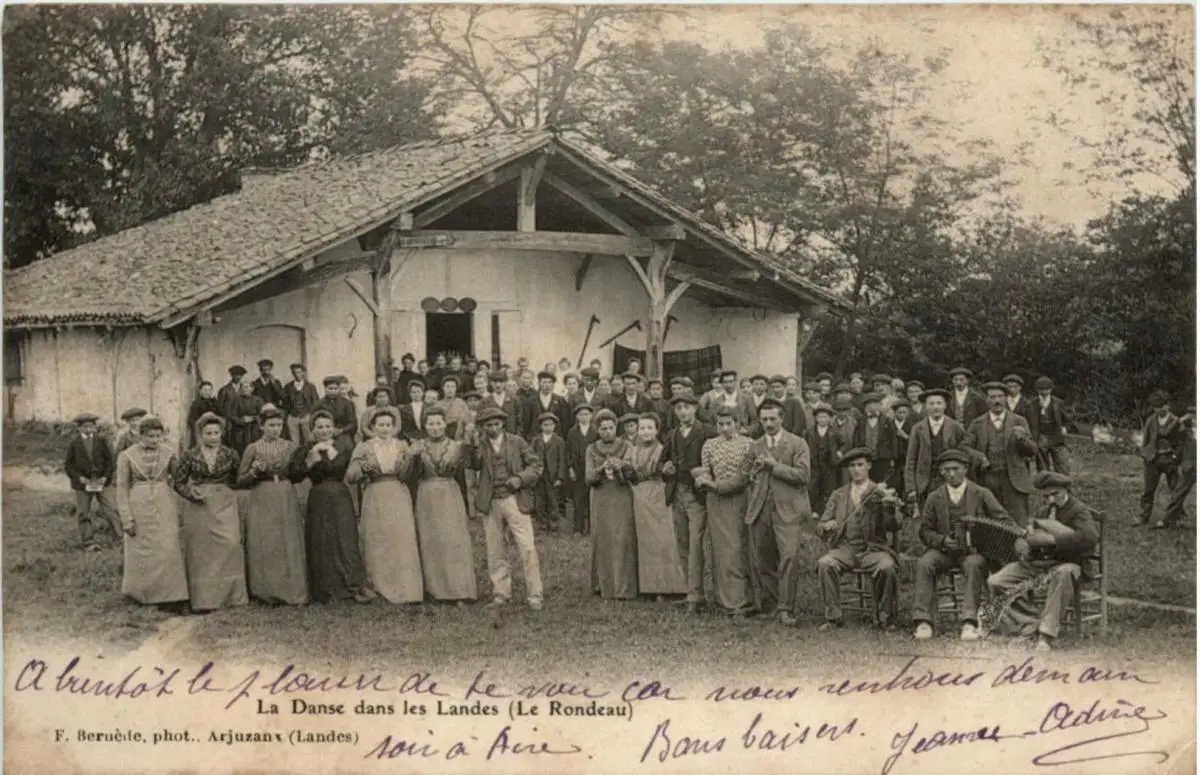 A bientôt le plaisir de te voir car nous rentrons demain
La Danse dans les Landes (Le Rondeau)
F. Bernède, phot., Arjuzanx (Landes)
soir à Aire. Bons baisers. Jeanne-Adrine